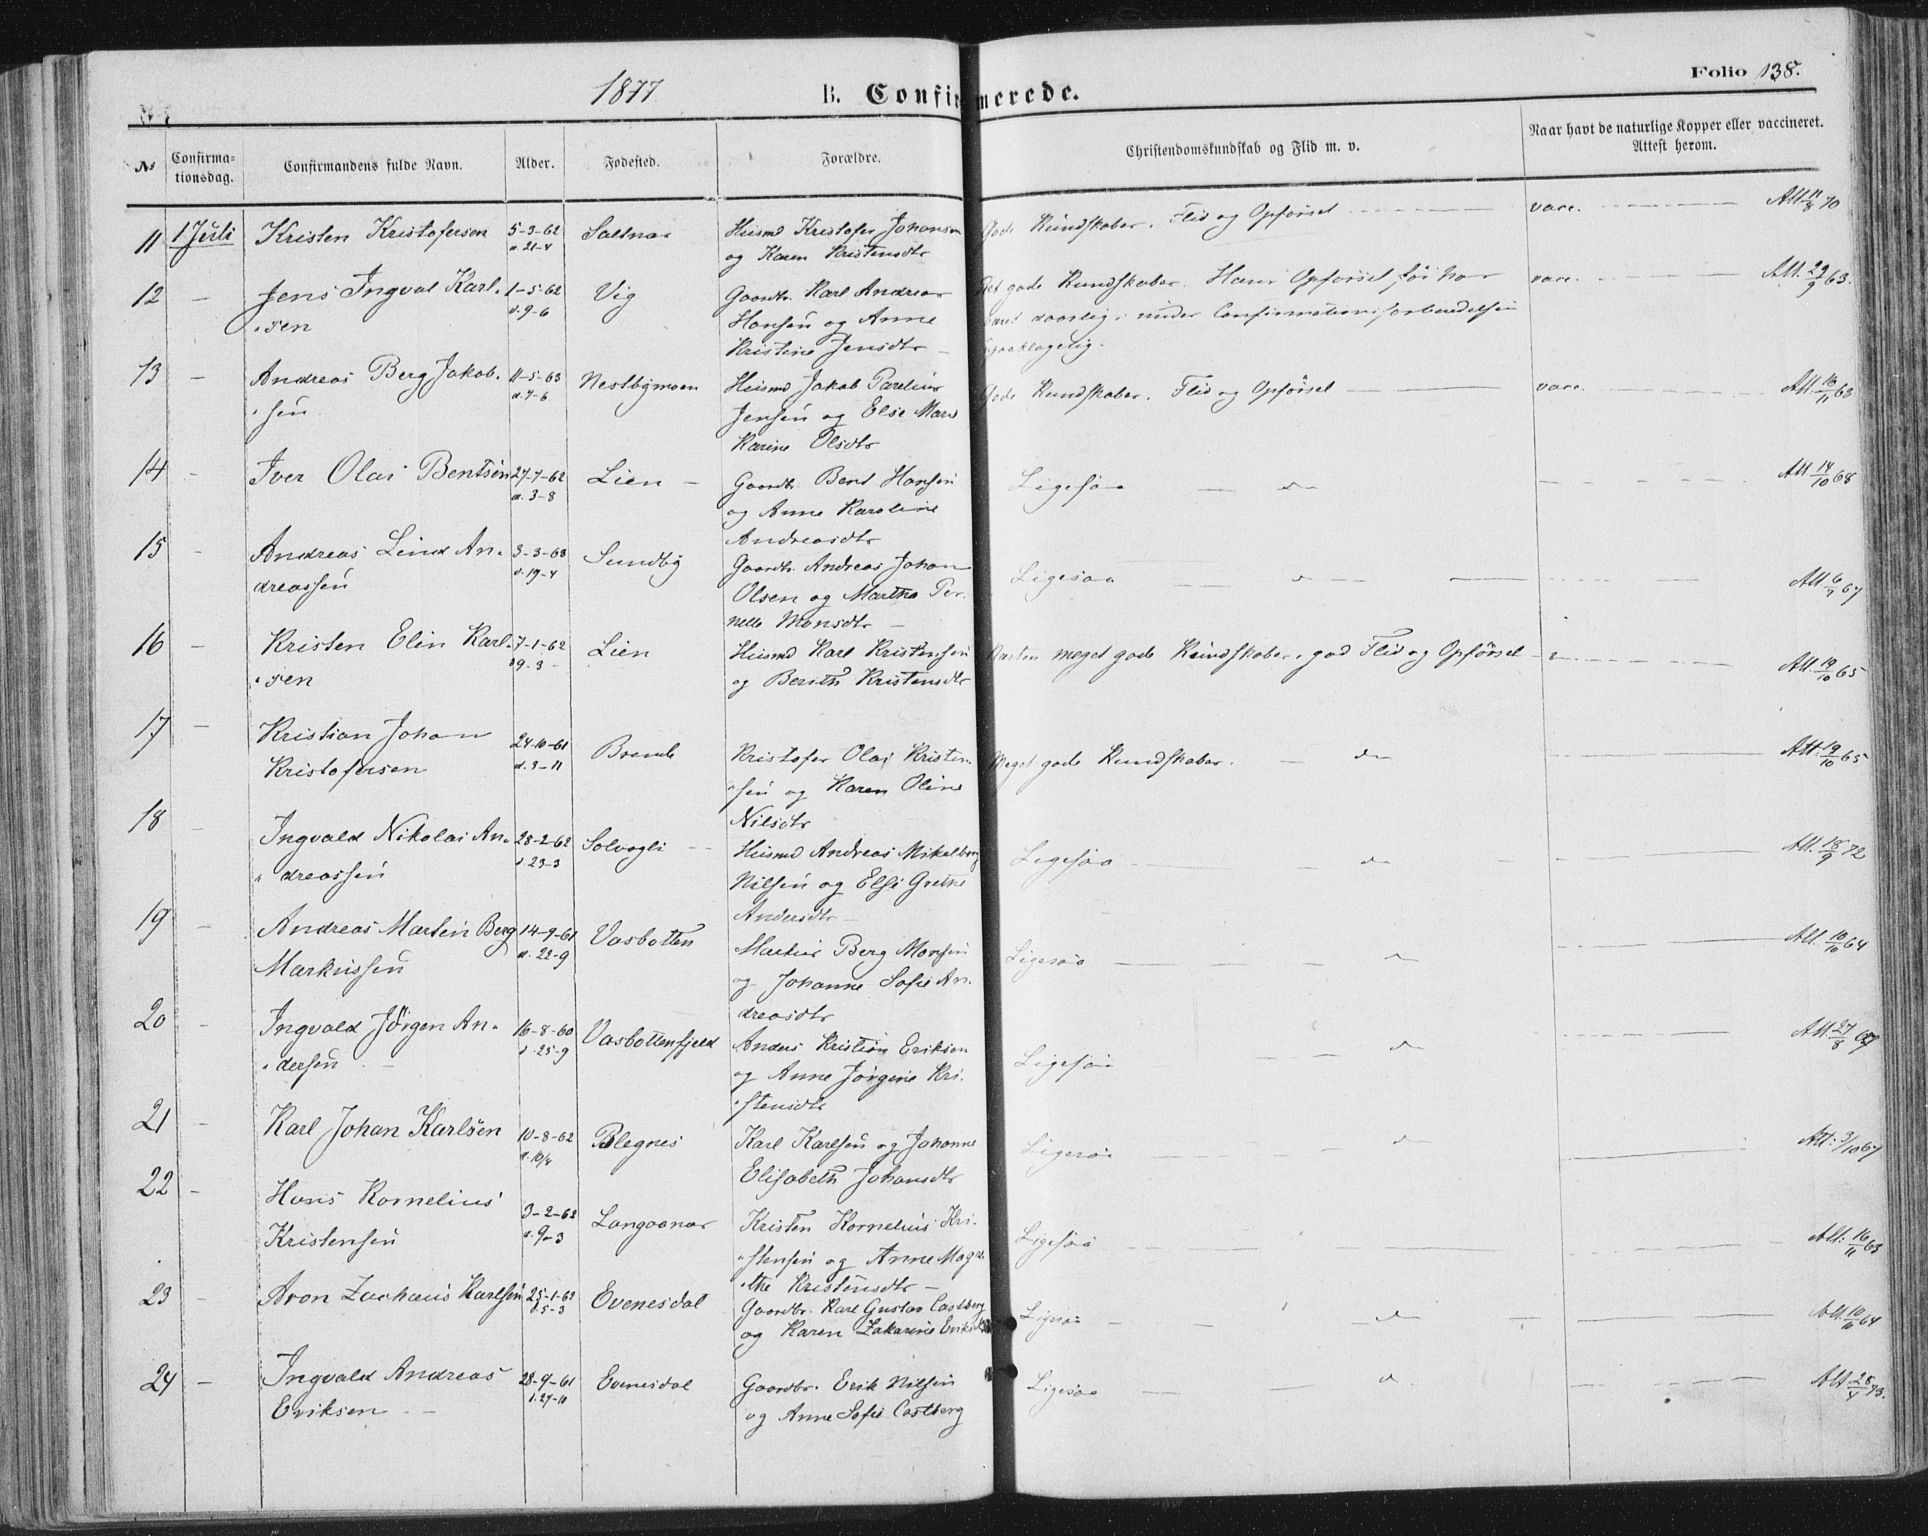 1877 B. Confirmerede. Folio 138.
No Confirmationsdag. Confirmandens fulde Navn. Alder. Fødested. Forældre. Christendomskundskab og Flid m. v. Naar havt de naturlige Kopper eller vaccineret. Attest herom.
11 1 Juli Kristen Kristofersen 5-3-62 Saltnes Husmd Kristofer Johansen Gode Kundskaber. Flid og Opførsel vacc. Att 11/8 70
d. 21-4 og Karen Kristensdtr
12 - Jens Ingval Karl- 1-5-62 Vig Gaardbr. Karl Andreas gode Kundskaber. Hans Opførsel før har vacc. Att. 29/9 63.
sen d. 9-6 Hansen og Anne været daarlig, under Confirmationsforberedelsen
Kristine Jensdtr upaaklagelig.
13 - Andreas Berg Jakob- 11-5-63 Nestbymoen Husmd Jakob Parelius Gode Kundskaber. Flid og Opførsel vacc. Att. 16/11 63
sen d. 7-6 Jensen og Else Mare
Karine Olsdtr
14 - Iver Olai Bentsen 27-7-62 Lien Gaardbr. Bent Hansen Ligesaa - do - Att 14/10 68
d. 3-8 og Anne Karoline
Andreasdtr
15 - Andreas Lind An- 3-3-63 Sundby Gaardbr. Andreas Johan Ligesaa - do - Att 6/7 67
dreassen d. 19-4 Olsen og Martha Per-
nelle Monsdtr
16 - Kristen Elin Karl- 7-1-62 Lien Husmd Karl Kristensen Næsten meget gode Kundskaber, god Flid og Opførsel Att. 19/10 65
sen d 9-3 og Berith Kristensdtr
17 - Kristian Johan 24-10-61 Kristofer Olai Kristen- Meget gode Kundskaber. - do Att. 19/10 65
Kristofersen d. 3-11 sen og Karen Oline
Nilsdtr
18 - Ingvald Nikolai An- 28-2-62 Solvogli Husmd Andreas Mikelborg Ligesaa - do - Att. 18/9 72
dreassen d. 23-3 Nilsen og Else Grethe
Andersdtr
19 - Andreas Martin Berg 14-9-61 Vasbotten Berg Monsen Ligesaa - do Att. 10/10 64
Markussen d. 22-9 og Johanne Sofie An-
dreasdtr
20 - Ingvald Jörgen An- 16-8-60 Vasbottenfjeld Anders Kristian Eriksen Ligesaa - do - Att 27/8 67
dersen d. 25-9 og Anne Jørgine Kri-
stensdtr
21 - Karl Johan Karlsen 10-8-62 Blegnes Karl Karlsen og Johanne Ligesaa - do Att: 3/10 67
d. 10/8 Elisabeth Johansdtr
22 - Hans Kornelius 3-2-62 Langaanes Kristen Kornelius Kri- Ligesaa Att: 16/11 63
Kristensen d. 9-3 stensen og Anne Magre-
the Kristensdtr
23 - Aron Zachæus Karlsen 25-1-63 Evenesdal Gaardbr. Karl Gustav Castberg Ligesaa - do - Att. 10/10 64
d. 5-3 og Karen Zakarine Eriksdtr
24 - Ingvald Andreas 28-9-61 Evenesdal Gaardbr. Erik Nilsen Ligesaa - do Att 28/4 73.
Eriksen d. 27-10 og Anne Sofie Castberg